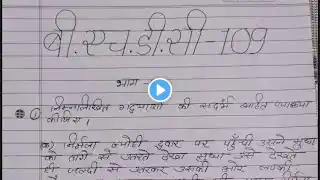 बी.एच.डी.सी-109
भाग -
① निम्नलिखित गद्यांशों की सन्दर्भ सहित व्याख्या
कीजिए।
क) निर्मला ज्योंही द्वार पर पहुँची उसने सुधा
को तांगे से उतरते देखा सुधा उसे देखते
ही जल्दी से उतरकर उसकी ओर लपकी